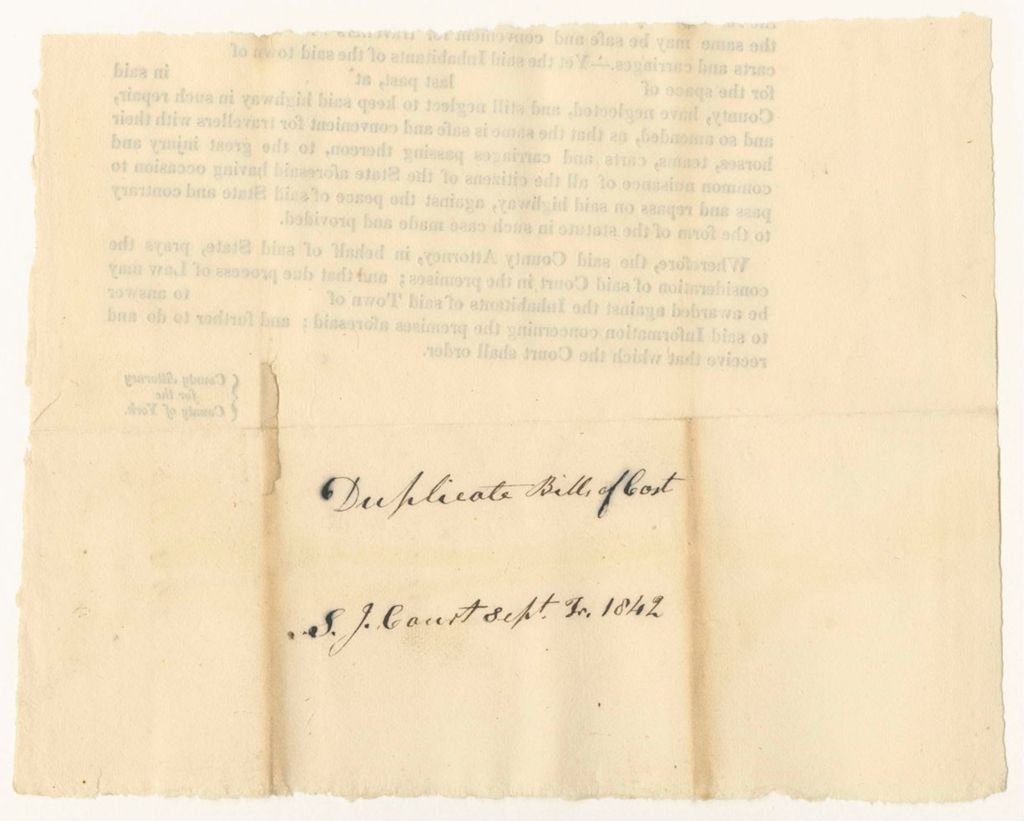 the same may be safe and convenient for travellers
carts and carriages.—Yet the said Inhabitants of the said town of
for the space of last past, at in said
County, have neglected, and still neglect to keep said highway in such repair,
and so amended, as that the same is safe and convenient for travellers with their
horses, teams, carts and carriages passing thereon, to the great injury and
common nuisance of all the citizens of the State aforesaid having occasion to
pass and repass on said highway, against the peace of said State and contrary
to the form of the statute in such case made and provided.
Wherefore, the said County Attorney, in behalf of said State, prays the
consideration of said Court in the premises; and that due process of Law may
be awarded against the Inhabitants of said Town of to answer
to said Information concerning the premises aforesaid; and further to do and
receive that which the Court shall order.
County Attorney
for the
County of York.
Duplicate Bills of Cost
S. J. Court Sept. Tr. 1842